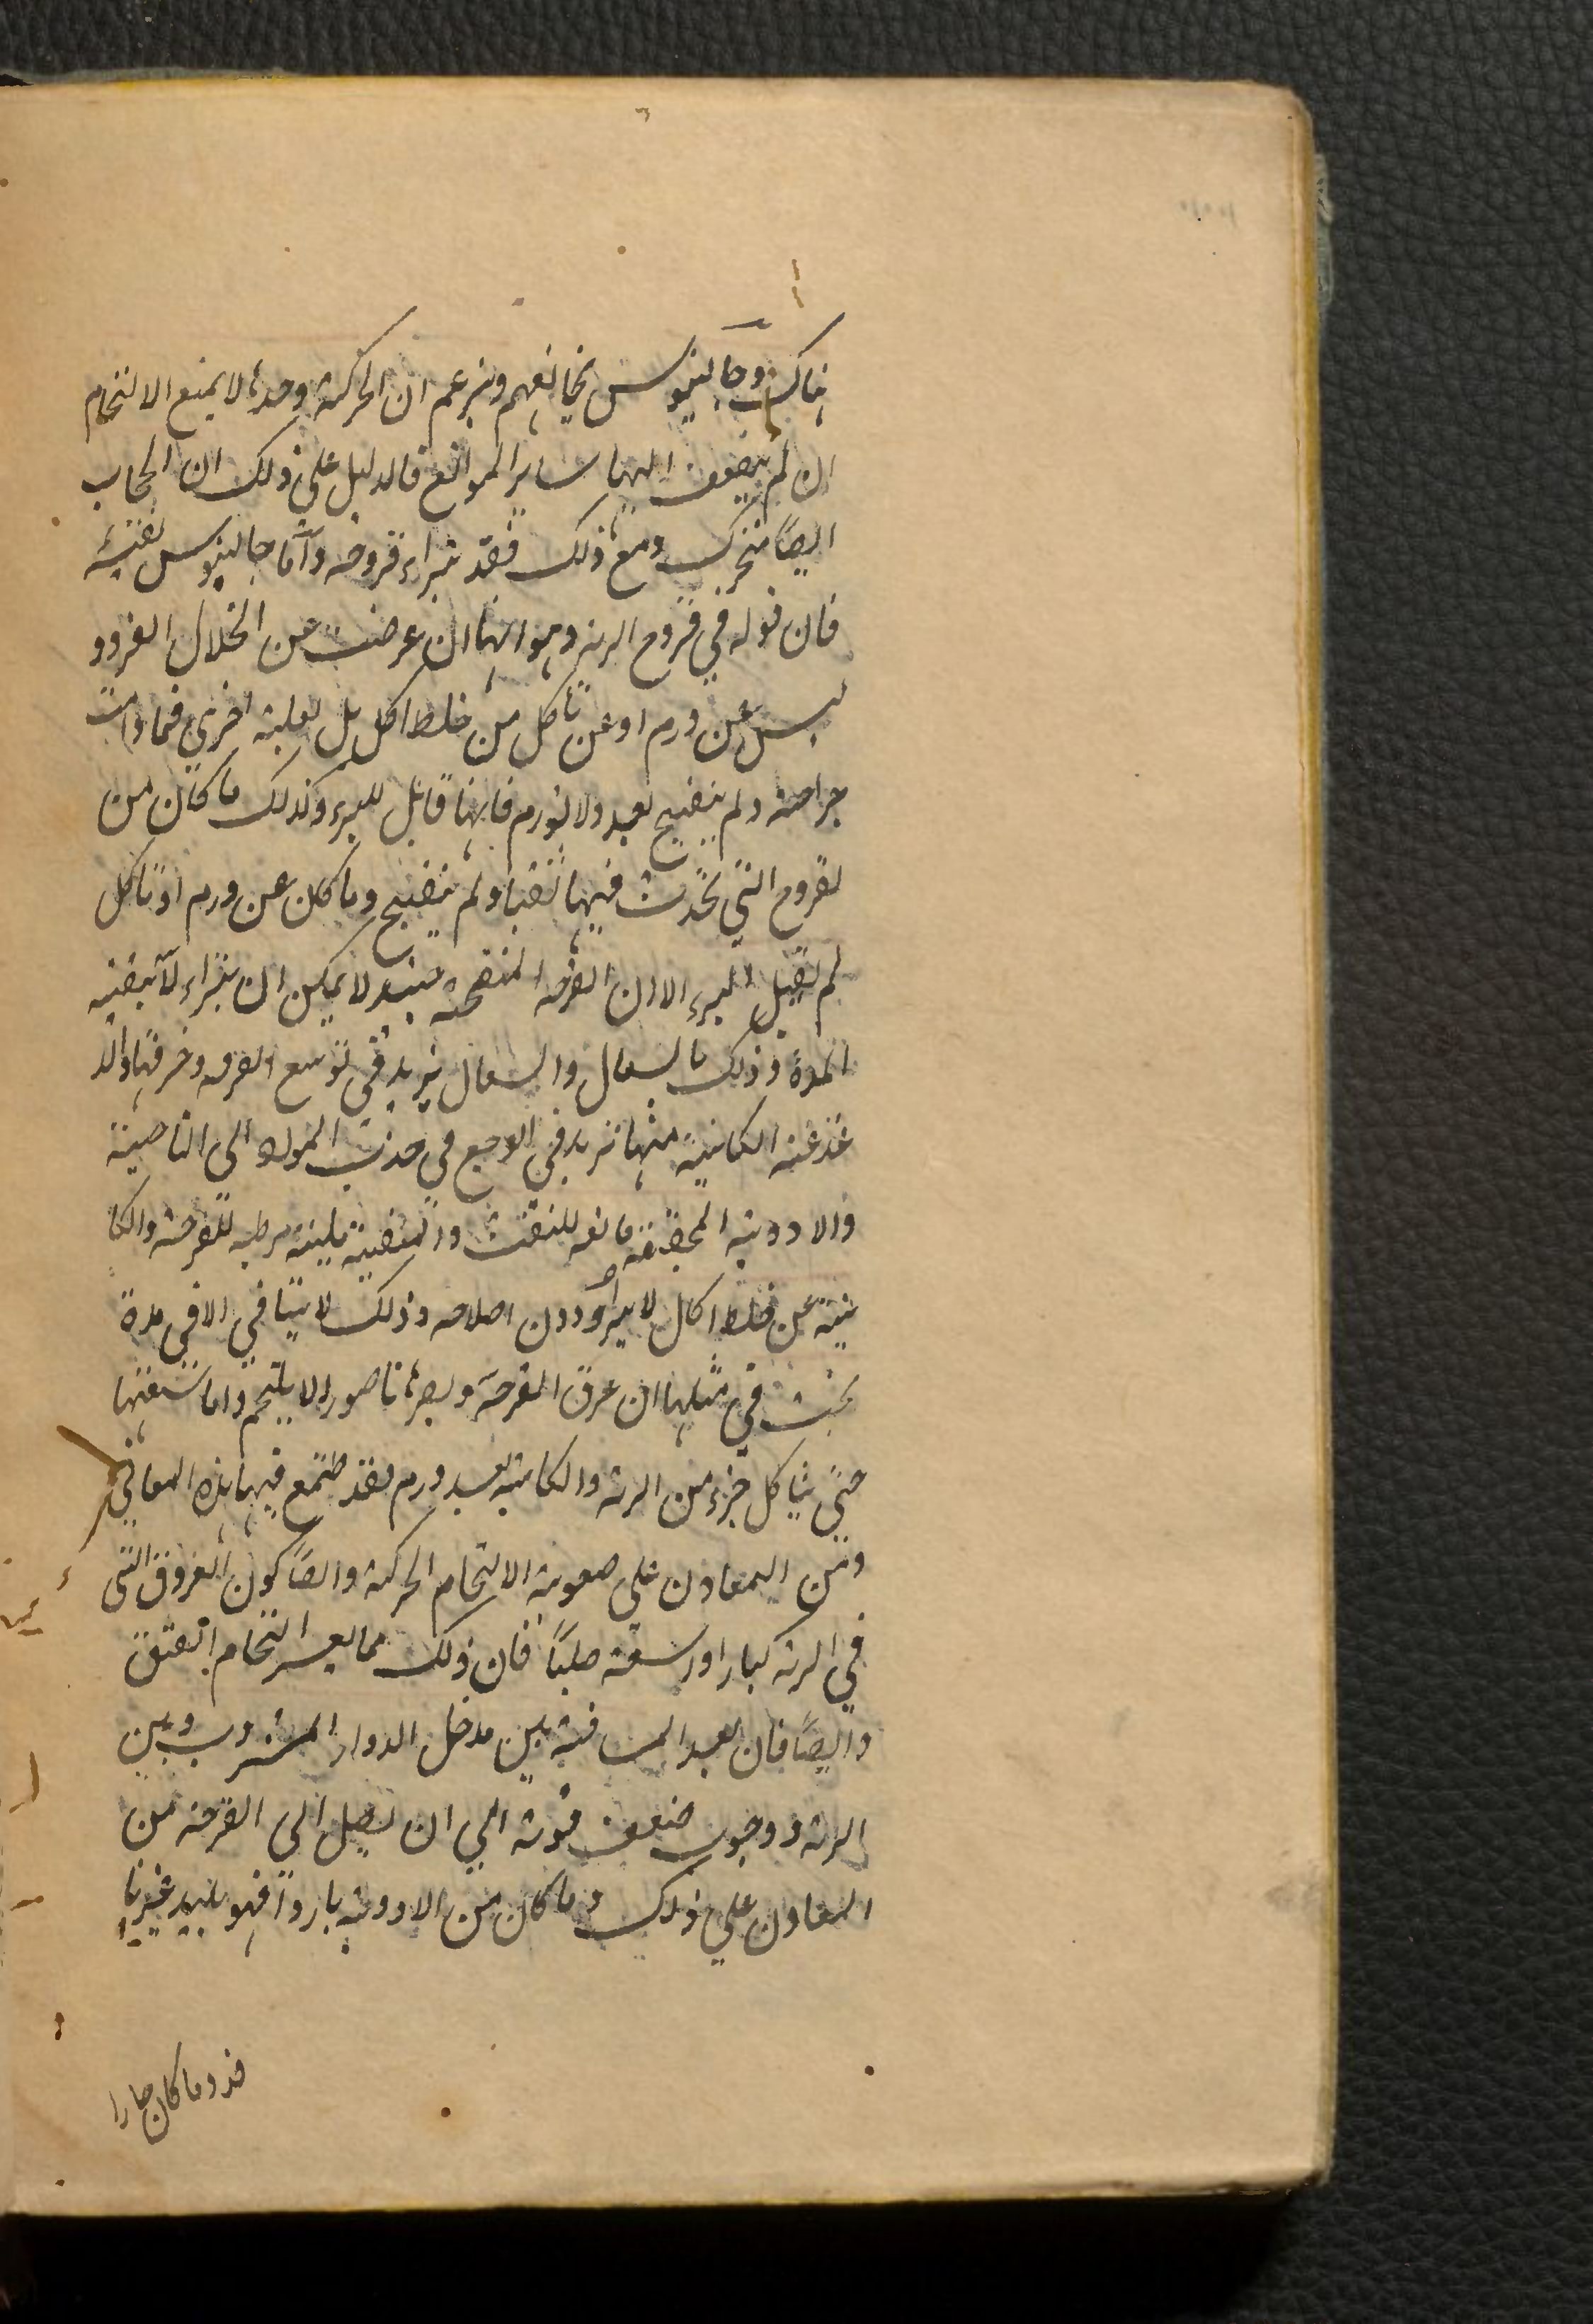 هناك وجالينوس يخالفهم ويزعم ان الحركة وحدها لا يمنع الالتحام
ان لم يضف اليها ساير الموانع فالدليل على ذلك ان الحجاب
ايضاً متحرك ومع ذلك فقد تبراء قروحه وآما جالينوس نفسه
فان قوله في قروح الرية وهو انها ان عرضت عن انحلال الفرد و
ليس عن ورم او عن تأكل من خلط اكل بل لعلة اخري فما دامت
جراحة ولم يتقيح بعد ولا تورم فانها قابل للبرء وكذلك ما كان من
لقروح التي تحدث فيها نقبا ولم يتقيح وما كان عن ورم او تاكل
لم تقبل البرء الا ان القرحه المتقيحة حينئد لا يمكن ان يبراء لا بتنقيه
المدة وذلك بالسعال والسعال يزيد في توسع القرحه وخرقها والد
غدغه الكاينة منها تزيد في الوجع في جذب المواد الى الناحية
والادوية المجففة مانعه للنفث والمنقية ملينة مرطبه للقرحة والكا
ينة عن خلط اكال لا يبرأ دون اصلاحه وذلك لا يتافي الا في مدة
يجب في مثلها ان عرق القرحة ويصيرها ناصورا لا يلتحم واما سعتها
حتي يتاكل جزء من الرية والكاينة بعد ورم فقد طتمع فيها هذه المعاني
ومن المعاون على صعوبة الالتحام الحركة وايضاً كون العروق التي
في الرية كبارا وراسعة صلباً فان ذلك مما يعسر التحام الفتق
وايضاً فان بعد المسافة بين مدخل الدواء المشروب وبين
الرية ووجوب ضعف قوته الي ان يصل الي القرحة من
المعاون علي ذلك وما كان من الادوية باردا فهو بليد غير نا
فذ وما كان حارا